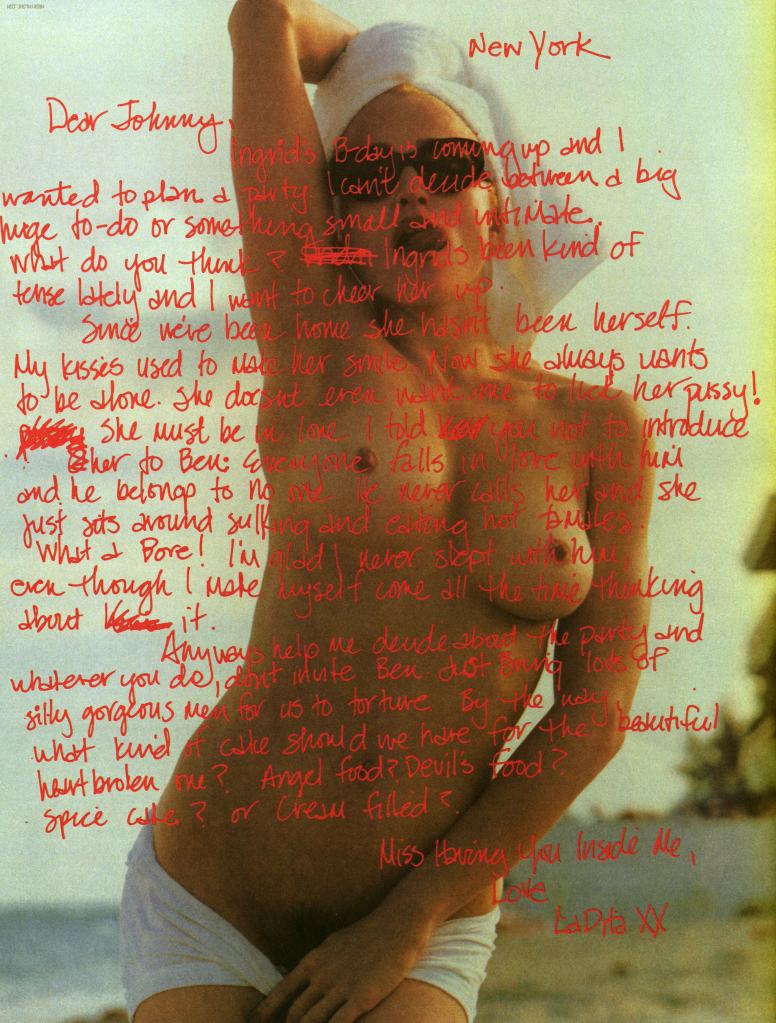 New York
Dear Johnny,
Ingrid's B-day is coming up and I
wanted to plan a party. I can't decide between a big
huge to-do or something small and intimate.
What do you think? Ingrid's been kind of
tense lately and I want to cheer her up.
Since we've been home she hasn't been herself.
My kisses used to make her smile. Now she always wants
to be alone. She doesnt even want me to lick her pussy!
She must be in love. I told you not to introduce
her to Ben: Everyone falls in love with him
and he belongs to no one. He never calls her and she
just sits around sulking and eating hot tamales.
What a Bore! I'm glad I never slept with him,
even though I make myself come all the time thinking
about it.
Anyways help me decide about the party and
whatever you do, don't invite Ben. Just Bring lots of
silly gorgeous men for us to torture. By the way,
what kind of cake should we have for the beautiful
heartbroken one? Angel food? Devil's food?
Spice cake? or Cream filled?
Miss Having You Inside Me,
Love
La Dita XX